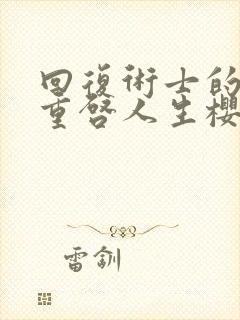 回復術士的
重啓人生櫻
雷釧